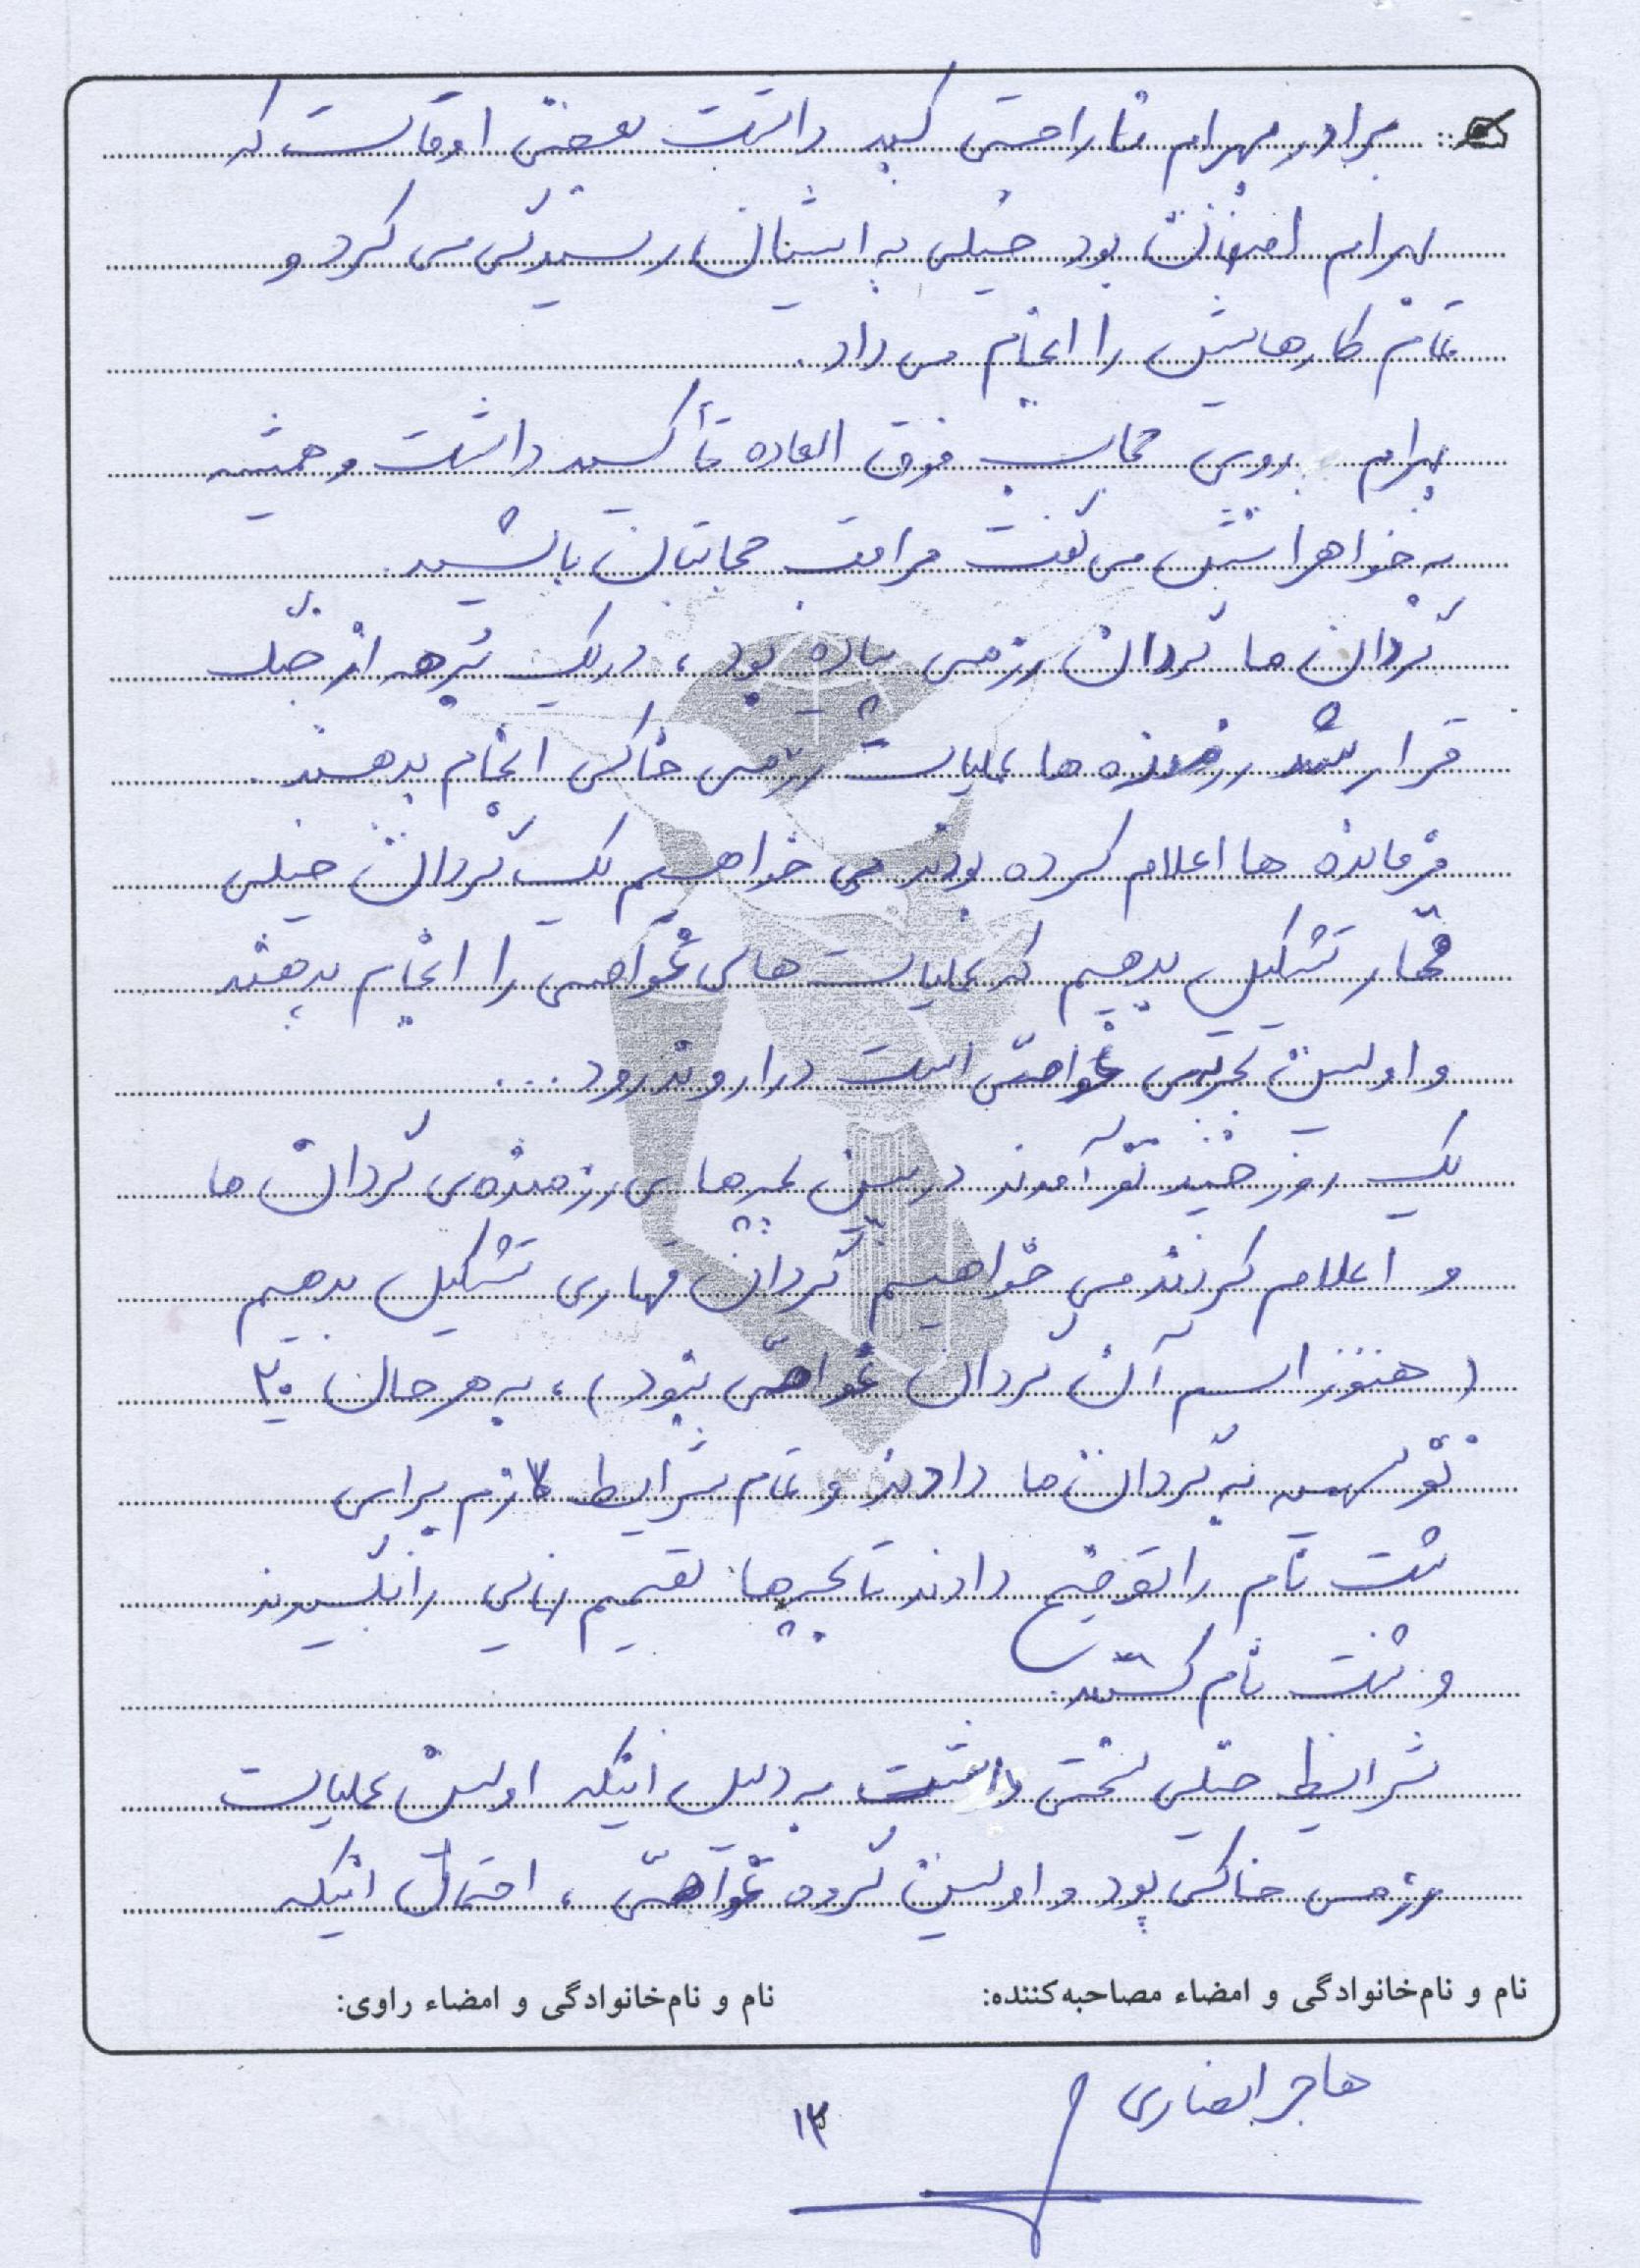 برادر بهرام ناراحتی کبد داشت بعضی اوقات که
بهرام اصفهان بود خیلی به ایشان رسیدگی می کرد و
تمام کارهایش را انجام می داد.
بهرام روی حجاب فوق العاده تأکید داشت و همیشه
به خواهرانش می گفت مراقب حجابتان باشید.
گردان ما گردان رزمی پیاده بود، در یک برهه از جنگ
قرار شد رزمنده ها عملیات رزمی خاکی انجام بدهند.
فرمانده ها اعلام کرده بودند می خواهیم یک گردان خیلی
قهار تشکیل بدهیم که عملیات های غواصی را انجام بدهند
و اولین تجربه ی غواصی است در اروند رود ...
یک روز چند نفر آمدند در بین بچه های رزمنده ی گردان ما
و اعلام کردند می خواهیم گردان قهاری تشکیل بدهیم
(هنوز اسم آن گردان غواصی نبود)، به هر حال ۲۰
نفر سهمیه به گردان ما دادند و تمام شرایط لازم برای
ثبت نام را توضیح دادند تا بچه ها تصمیم نهایی را بگیرند
و ثبت نام کنند.
شرایط خیلی سختی داشت به دلیل اینکه اولین عملیات
رزمی خاکی بود و اولین گروه غواصی، احتمال اینکه
نام و نام‌خانوادگی و امضاء مصاحبه‌کننده: نام و نام‌خانوادگی و امضاء راوی:
هاجر انصاری
۱۳